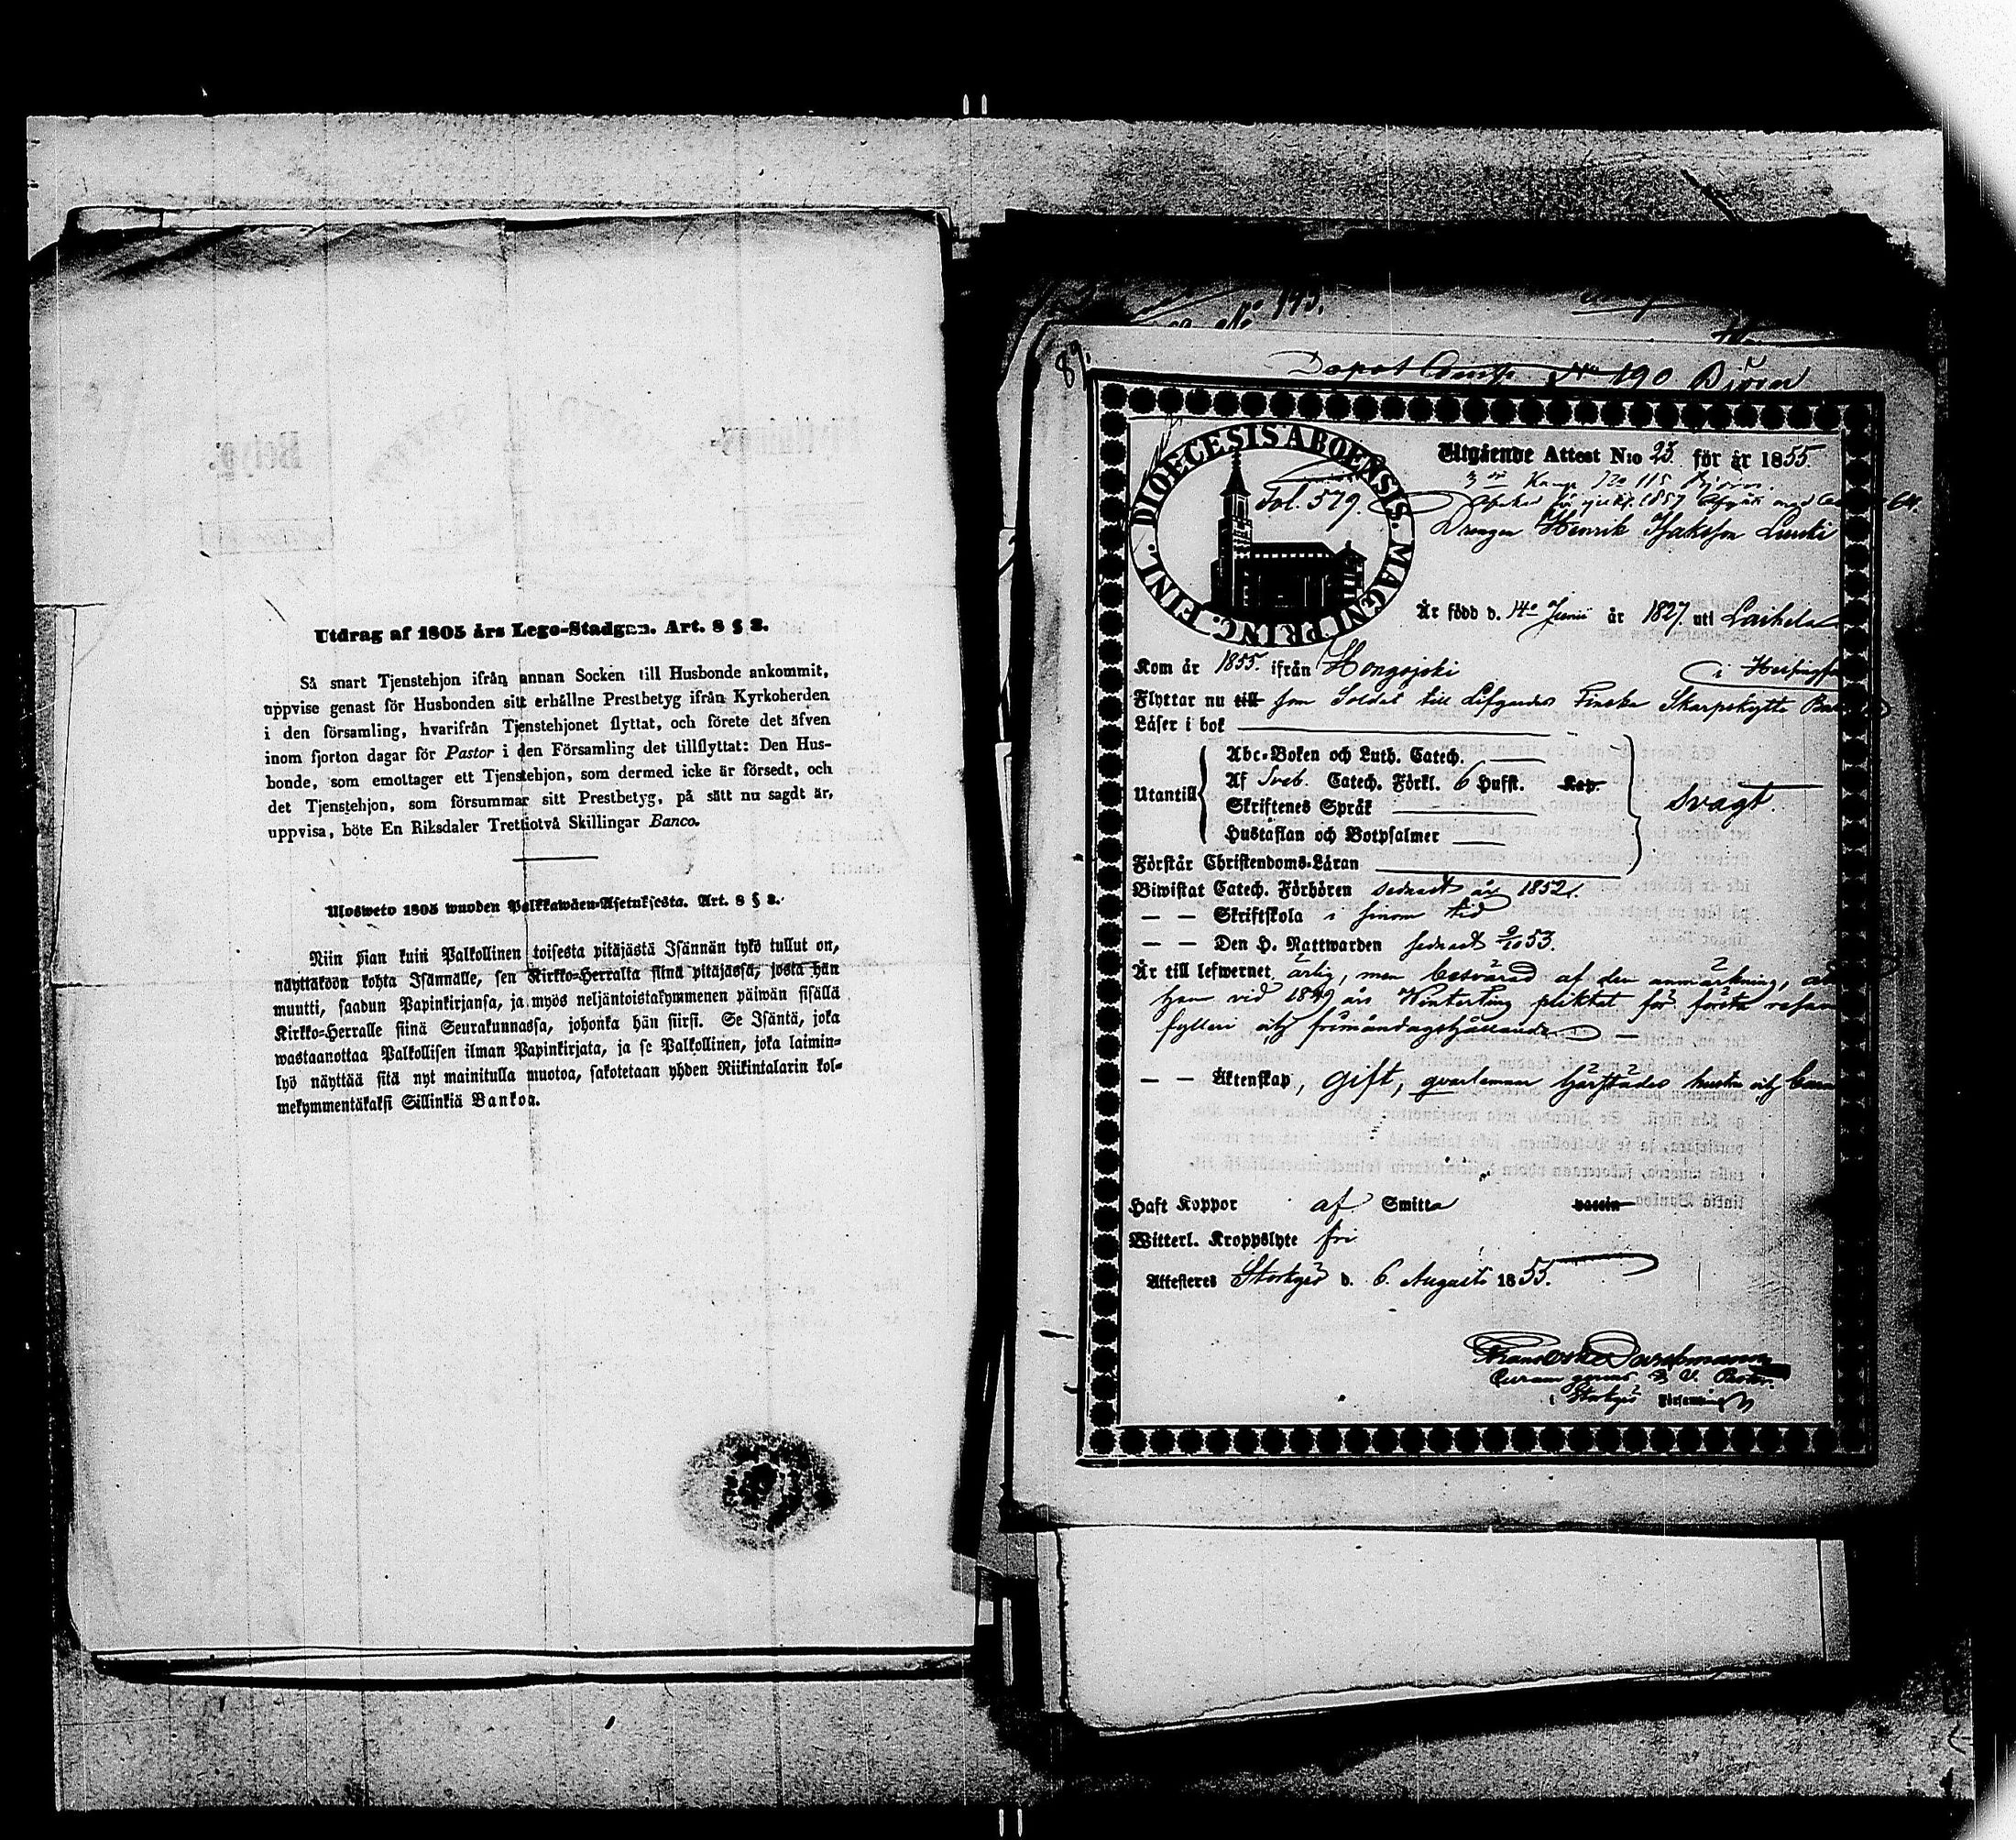 Utdrag af 1805 års Lego-Stadgan. Art. 8 § 2.
Så snart Tjenstehjon ifrån annan Socken till Husbonde ankommit,
uppvise genast för Husbonden sitt erhållne Prestbetyg ifrån Kyrkoherden
i den församling, hvarifrån Tjenstehjonet flyttat, och förete det äfven
inom fjorton dagar för Pastor i den Församling det tillflyttat: Den Hus-
bonde, som emottager ett Tjenstehjon, som dermed icke är försedt, och
det Tjenstehjon, som försummar sitt Prestbetyg, på sätt nu sagdt är,
uppvisa, böte En Riksdaler Trettiotvå Skillingar Banco.
Ulosweto 1805 wuoden Palkkawäen-Asetuksesta. Art. 8 § 2.
Niin pian kuin Palkollinen toisesta pitäjästä Isännän tykö tullut on,
näyttäköön kohta Isännälle, sen Kirkko-Herralta siinä pitäjässä, josta hän
muutti, saadun Papinkirjansa, ja myös neljäntoistakymmenen päiwän sisällä
Kirkko-Herralle siinä Seurakunnassa, johonka hän siirsi. Se Isäntä, joka
wastaanottaa Palkollisen ilman Papinkirjata, ja se Palkollinen, joka laimin-
lyö näyttää sitä nyt mainitulla muotoa, sakotetaan yhden Riikintalarin kol-
mekymmentäkaksi Sillinkiä Bankoa.
No 145.
89.
Depot Comp. No 190 Björn
DIOECESIS ABOENSIS. MAGNI PRINC. FINL.
Fol. 579.
Utgående Attest N:o 23 för år 1855.
3 Komp No 115 Björn.
1857
Drengen Henrik Isaksson Luuki
Är född d. 14 Junii år 1827. uti Laihela
Kom år 1855. ifrån Hongojoki
i Helsingfors
Flyttar nu till som Soldat till Lifgardes Finska Skarpskytte
Läser i bok
Utantill
Abc-Boken och Luth. Catech.
Af Sveb. Catech. Förkl. 6 Hufst. Kap.
Skriftenes Språk
Hustaflan och Botpsalmer
Svagt.
Förstår Christendoms-Läran
Biwistat Catech. Förhören sednast år 1852.
— — Skriftskola i sinom tid
— — Den H. Nattwarden sednast 9/10 53.
Är till lefwernet ärlig, men besvärad af den anmärkning, att
han vid 1849 års Winterting pliktat för första resan
fylleri och frimåndagshållande —
— — Äktenskap, gift, qvarlemnar härstädes hustru och barn
Haft Koppor af Smitta vaccin
Witterl. Kroppslyte fri
Attesteras Storkyro d. 6. Augusti 1855.
Frans Oskar Durchman
Curam gerens & V. Pastor.
i Storkyro Församling